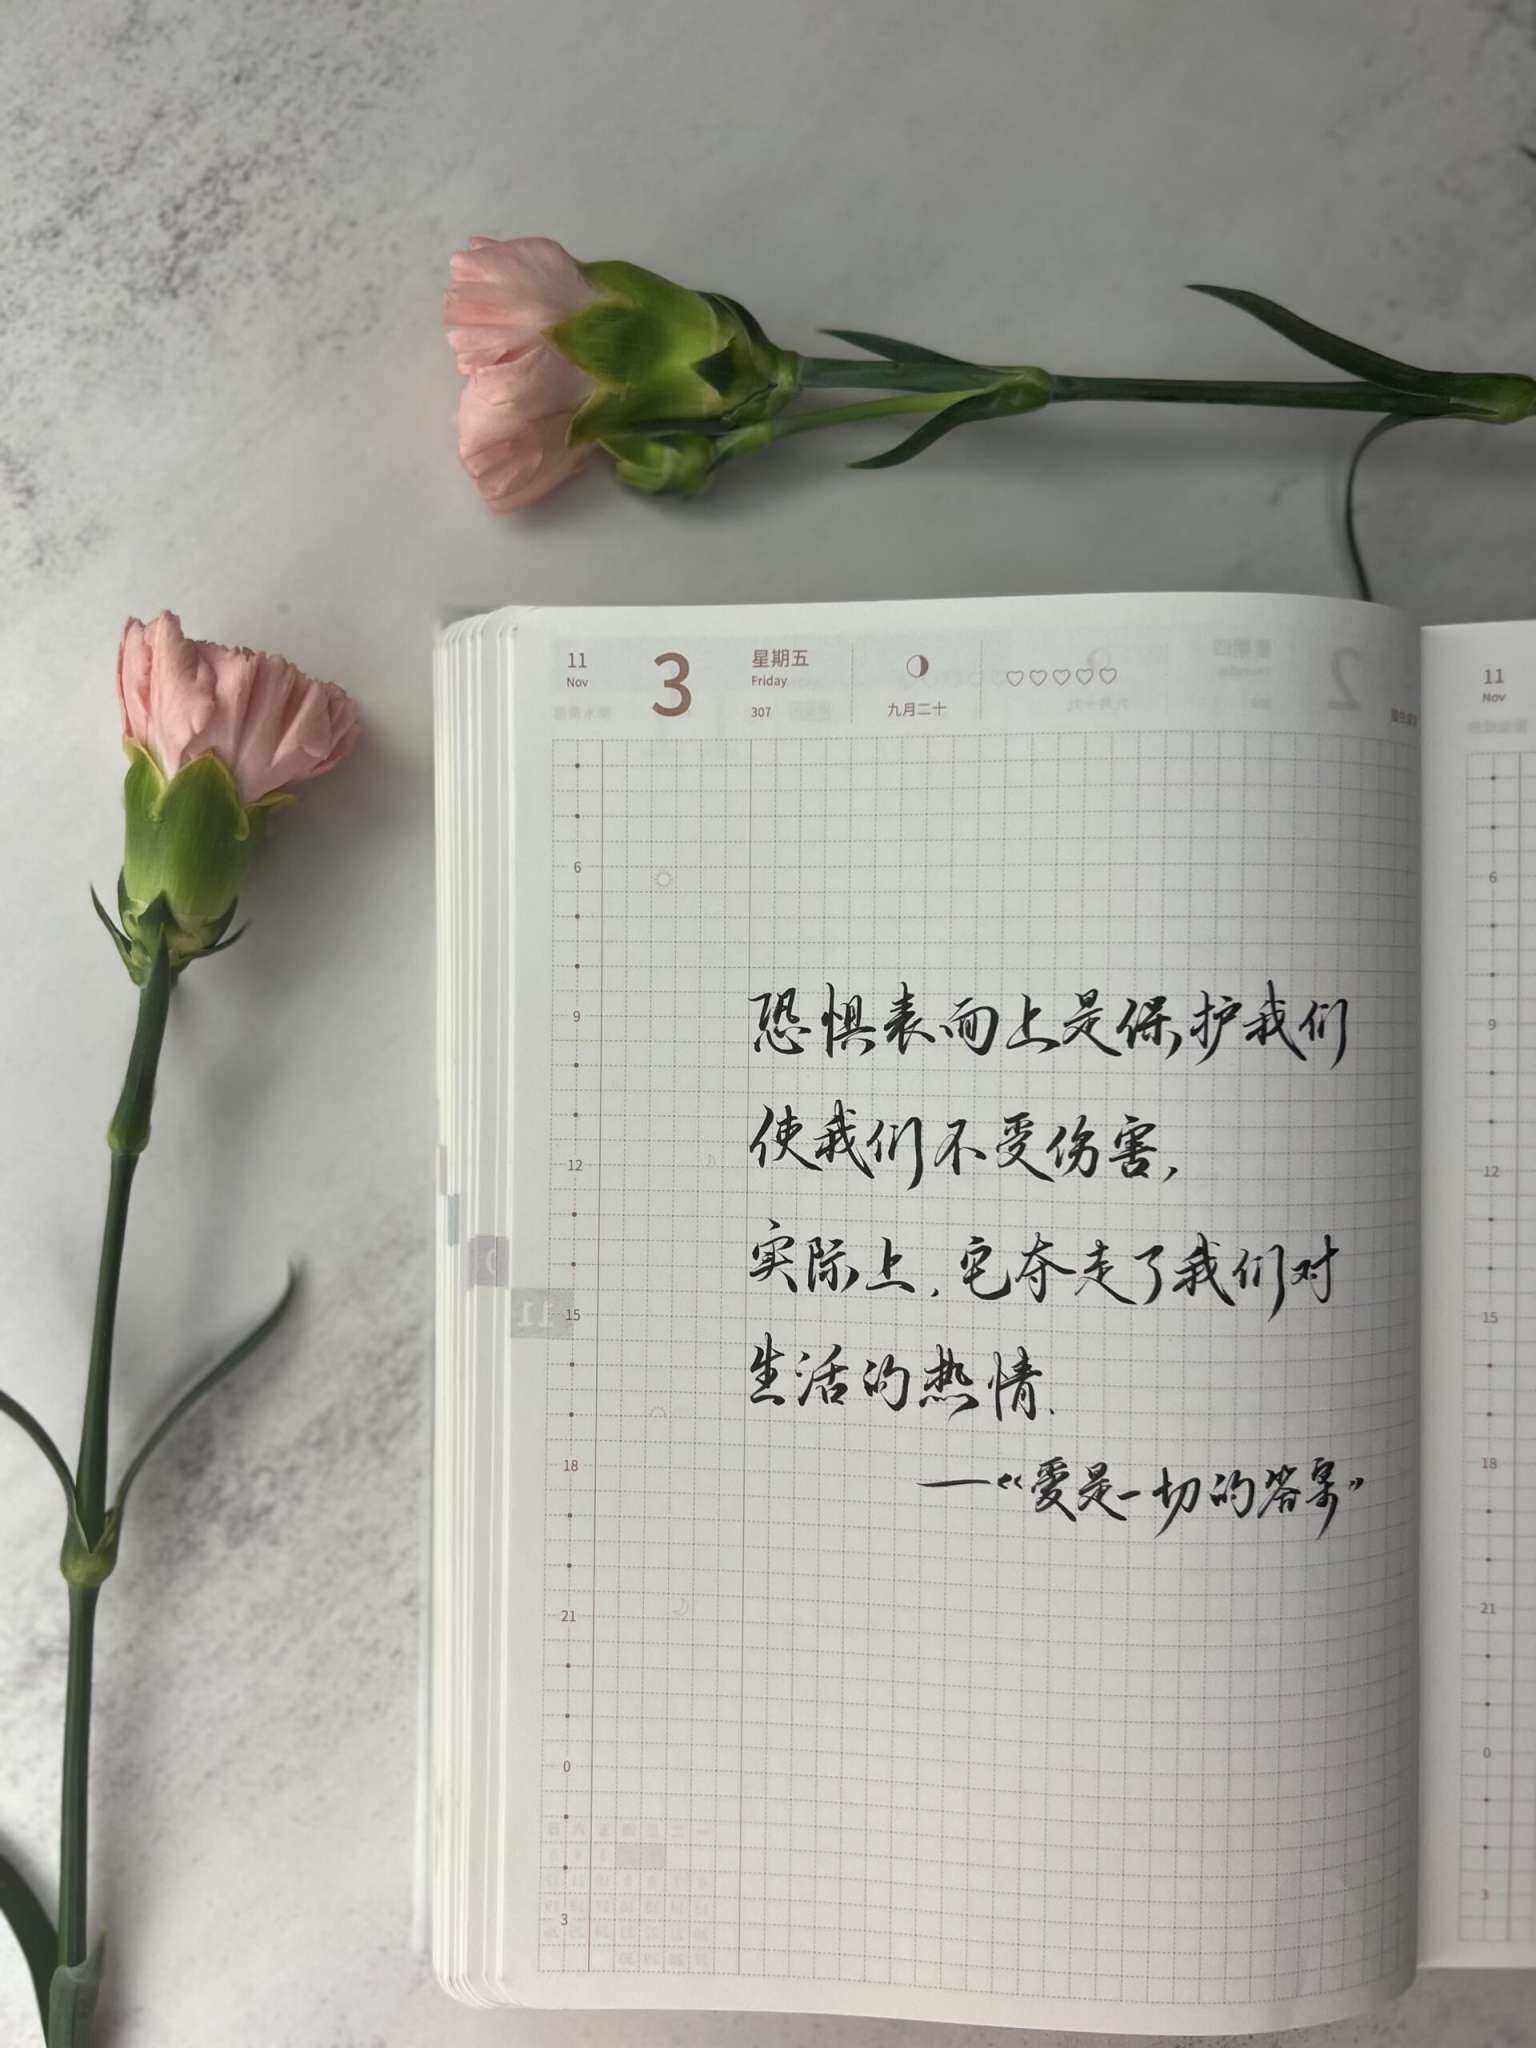 11
Nov
3
星期五
Friday
307
九月二十
11
Nov
6
9
12
15
18
21
0
3
恐惧表面上是保护我们
使我们不受伤害,
实际上,它夺走了我们对
生活的热情.
—《爱是一切的答案》
11
6
9
12
15
18
21
0
3